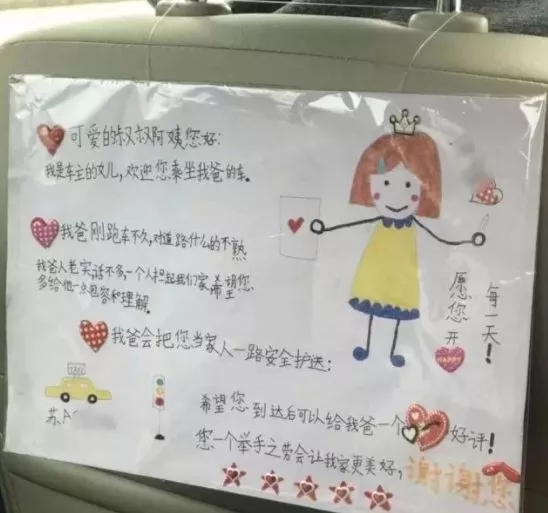 可爱的叔叔阿姨您好:
我是车主的女儿,欢迎您乘坐我爸的车。
我爸刚跑车不久,对道路什么的不熟
我爸人老实话不多,一个人担起我们家希望您
多给他一点包容和理解。
我爸会把您当家人一路安全护送:
愿您开
HAPPY
每一天!
TAXI
苏A
希望您到达后可以给我爸一个好评!
您一个举手之劳会让我家更美好,谢谢您